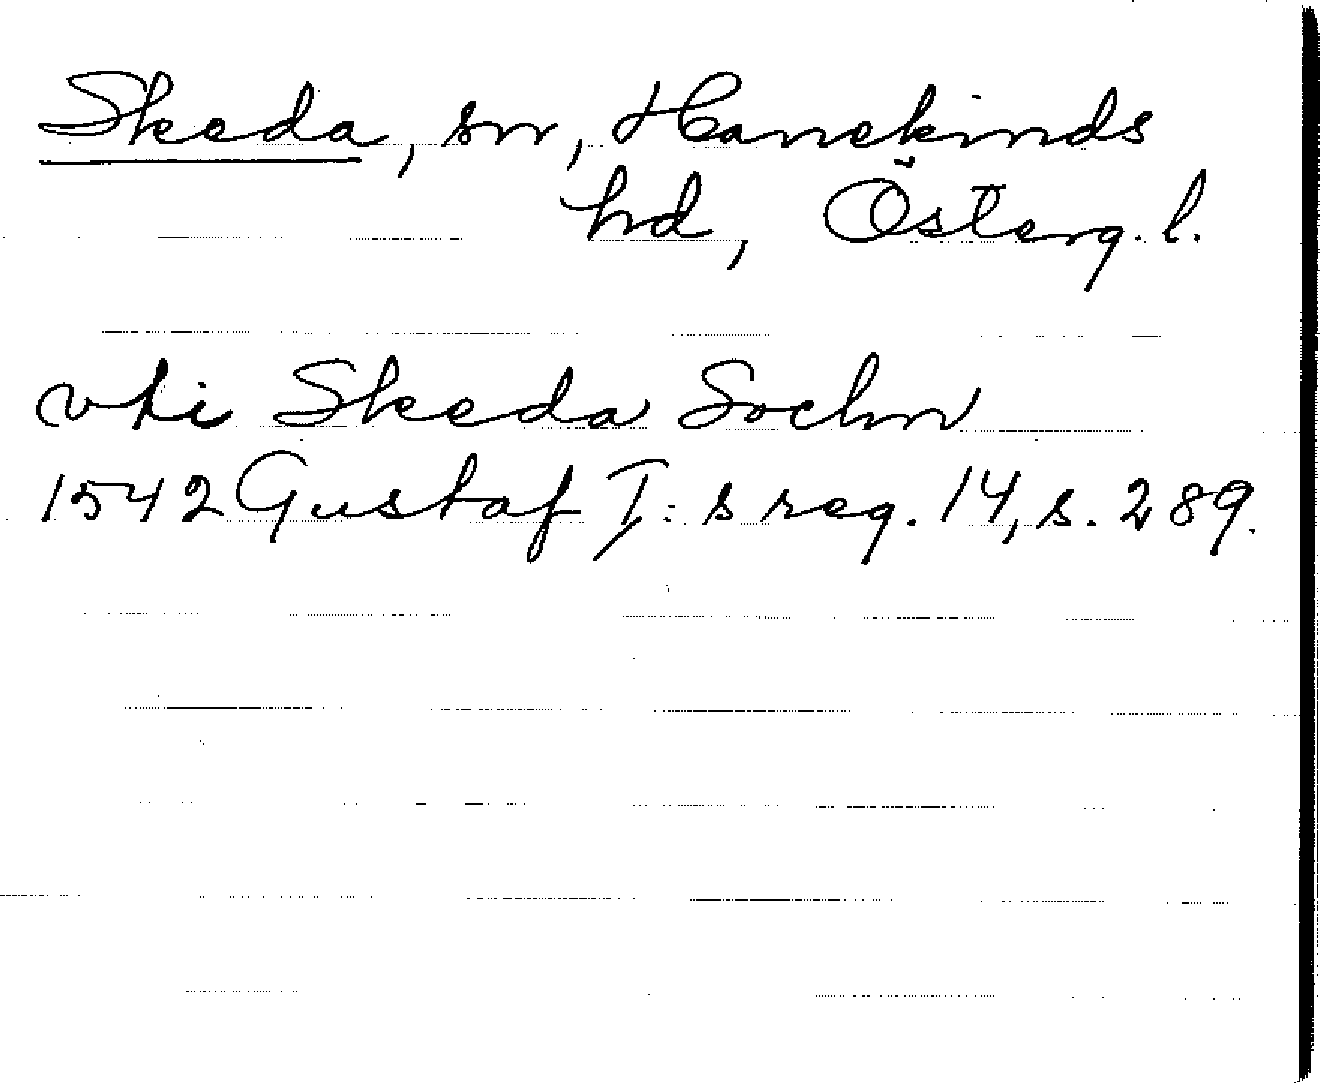 Skeda, sn, Hanekinds
hd, Österg. l.
vthi Skeda Sochn
1542 Gustaf I: s reg. 14, s. 289.